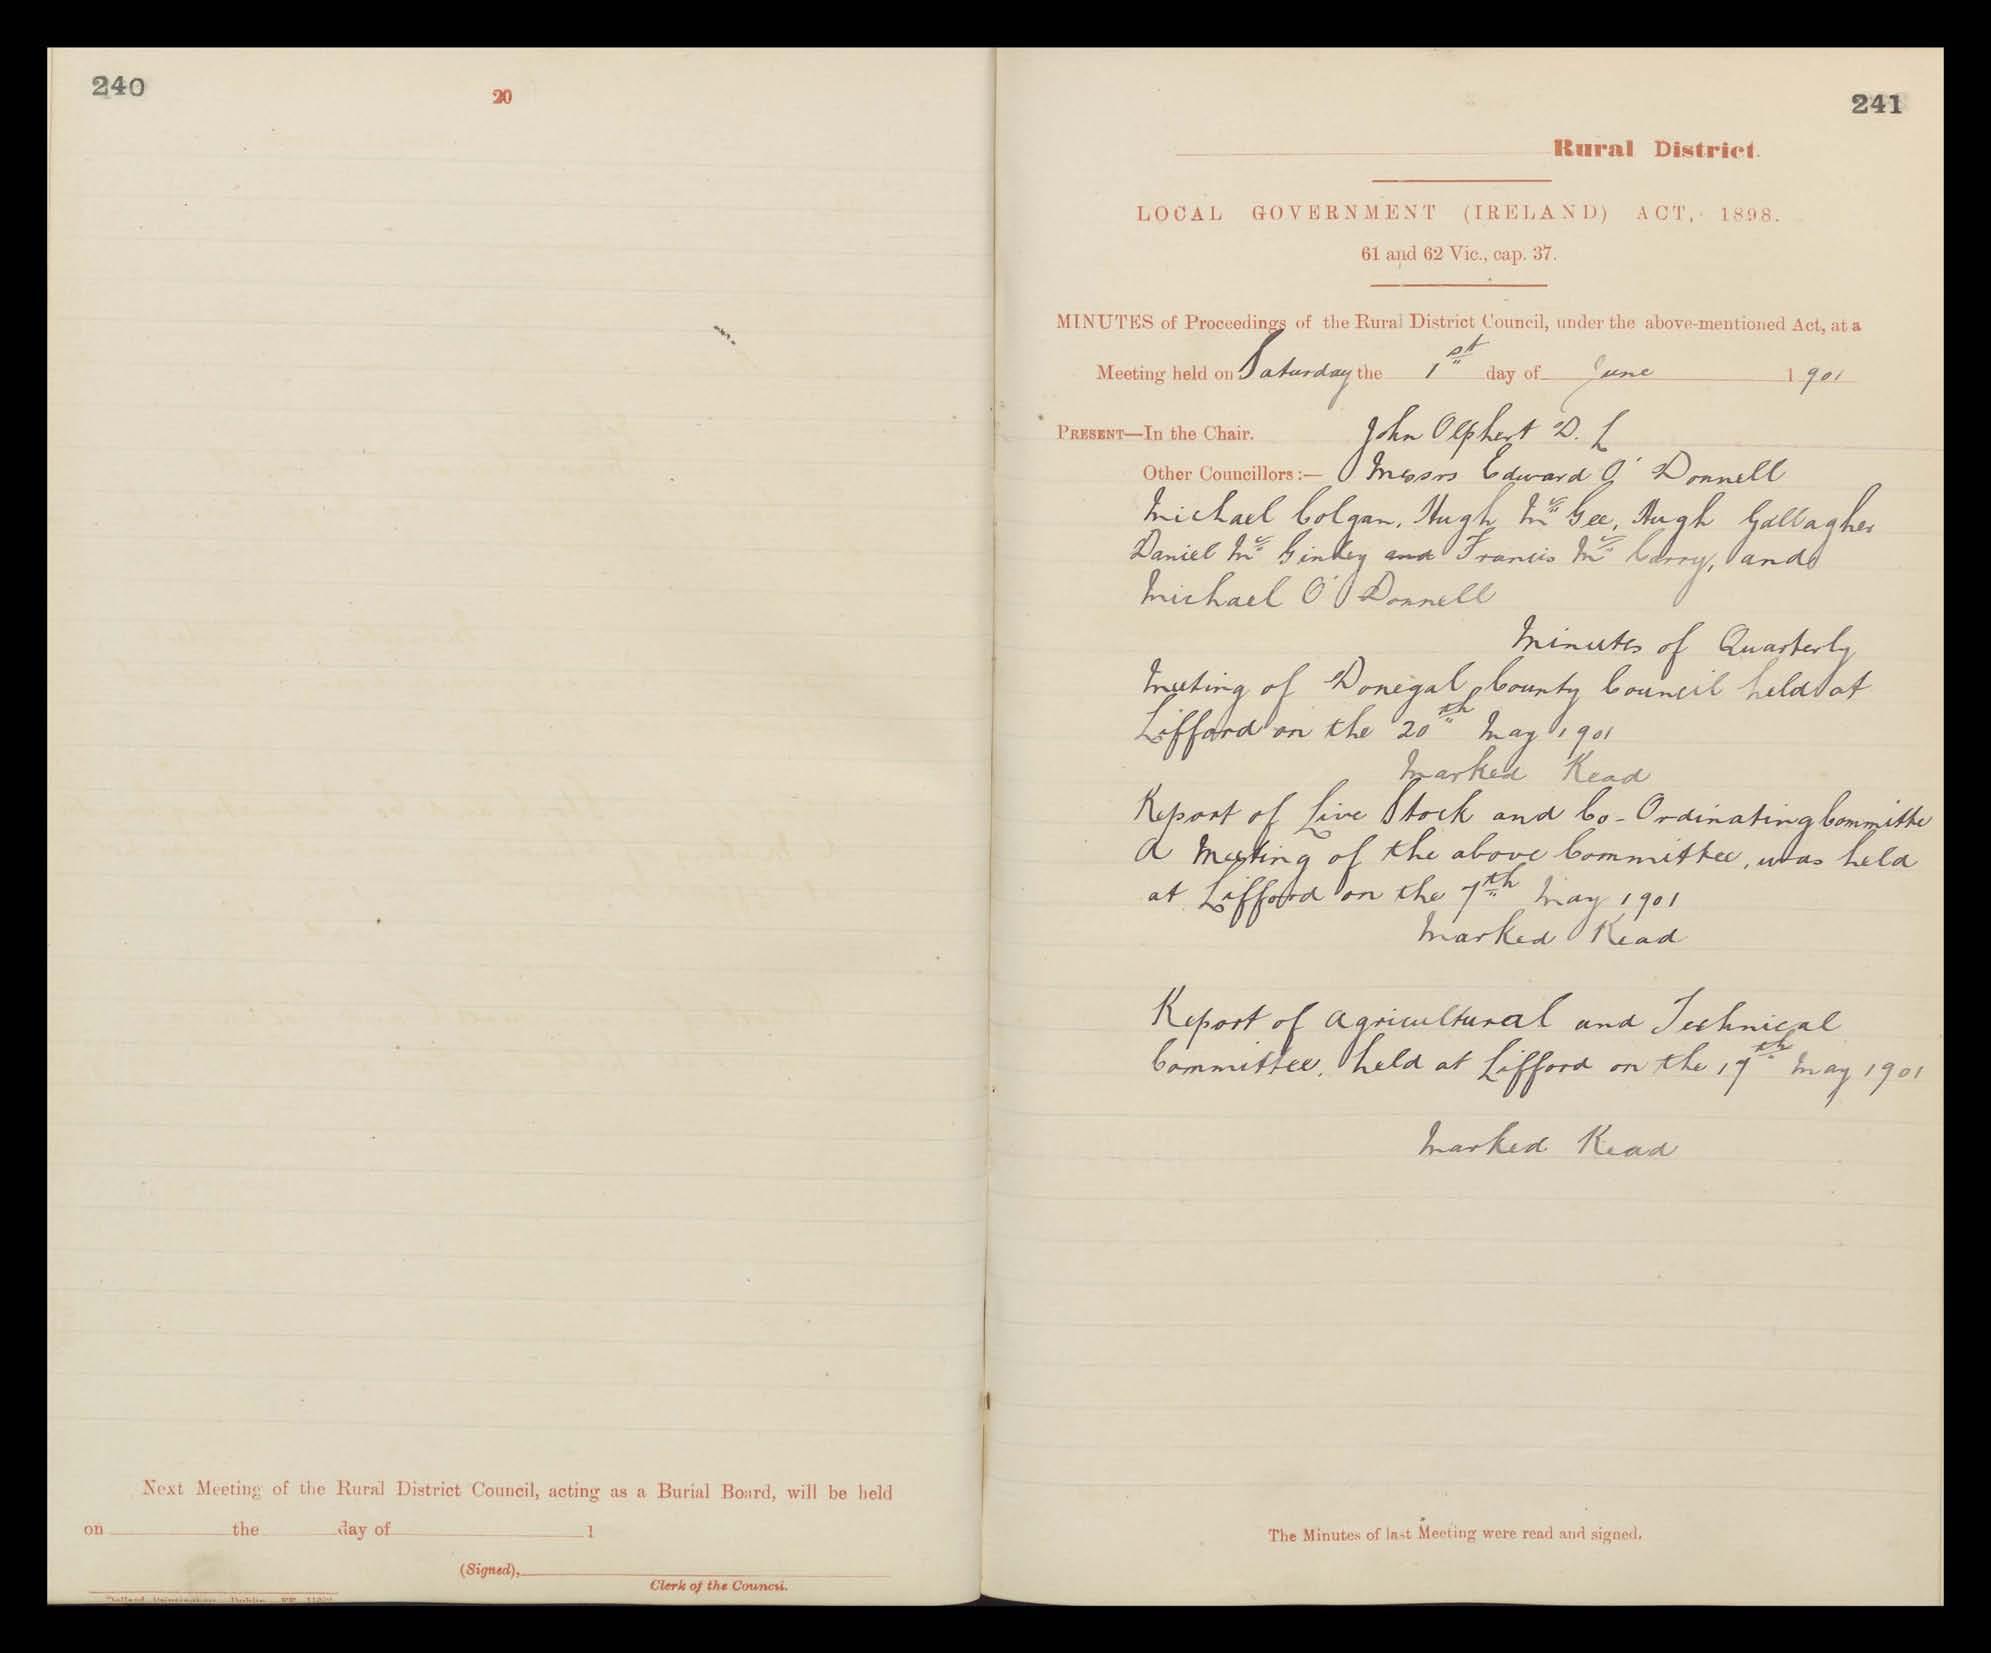 240
20
Next Meeting of the Rural District Council, acting as a Burial Board, will be held
on the day of 1
(Signed),
Clerk of the Council.
241
Rural District.
LOCAL GOVERNMENT (IRELAND) ACT, 1898.
61 and 62 Vic., cap. 37.
MINUTES of Proceedings of the Rural District Council, under the above-mentioned Act, at a
Meeting held on Saturday the 1st day of June 1901
PRESENT—In the Chair. John Olphert D. L
Other Councillors:— Messrs Edward O'Donnell
Michael Colgan, Hugh McGee, Hugh Gallagher
Daniel McGinley and Francis McCarry, and
Michael O'Donnell
Minutes of Quarterly
Meeting of Donegal County Council held at
Lifford on the 20th May 1901
Marked Read
Report of Live Stock and Co-Ordinating Committee
A Meeting of the above Committee, was held
at Lifford on the 7th May 1901
Marked Read
Report of Agricultural and Technical
Committee, held at Lifford on the 17th May 1901
Marked Read
The Minutes of last Meeting were read and signed.